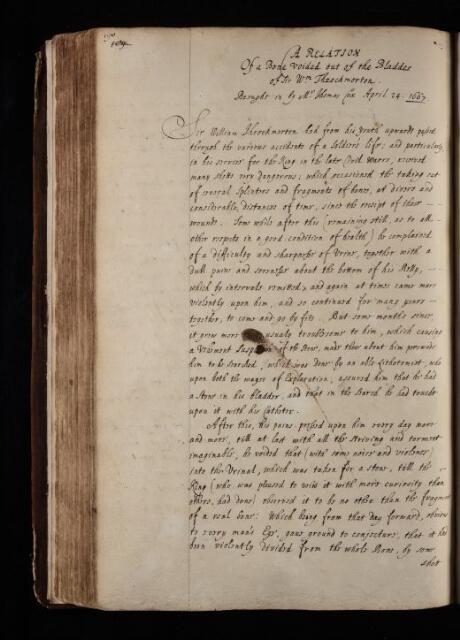 A RELATION
Of a Bone voided out of the Bladder
of Sr Wm Throckmorton.
Brought in by Mr Thomas Cox April 24. 1667.
Sir William Throckmorton had from his youth upwards passed
through the various accidents of a Soldiers life; and particularly
in his service for the King in the late Civil Warrs, received
many shotts very dangerous; which occasioned the taking out
of several Splinters and fragments of bones, at divers and
considerable distances of time, since the receipt of those
wounds. Some while after this (remaining still, as to all
other respects in a good condition of health) he complained
of a difficulty and sharpness of Urine, together with a
dull paine and soreness about the bottom of his Belly,
which by intervals remitted, and again at times came more
violently upon him, and so continued for many years
together, to come and go by fits. But some months since
it grew more usually troublesome to him, which causing
a vehement of the stone, made those about him perswade
him to be searched; which was done by an able Lithotomist, who
upon both the wayes of Exploration, assured him that he had
a stone in his bladder, and that in the search he had touch't
upon it with his Catheter.
After this, his pains pressed upon him every day more
and more, till at last with all the striving and torment
imaginable, he voided that (with some noise and violence)
into the Urinal, which was taken for a stone, till the
King (who was pleased to view it with more curiosity than
others, had done) observed it to be no other than the fragment
of a real bone: Which being from that day forward, obvious
to every man's Eye, gave ground to conjecture, that it had
been violently divided from the whole Bone, by some
shot